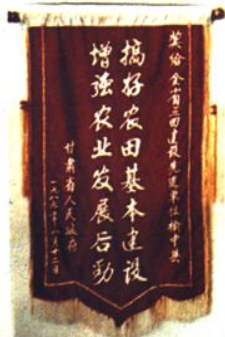 奖给全省三田建设先进单位榆中县
搞好农田基本建设
增强农业发展后劲
甘肃省人民政府
一九八年八月十二日